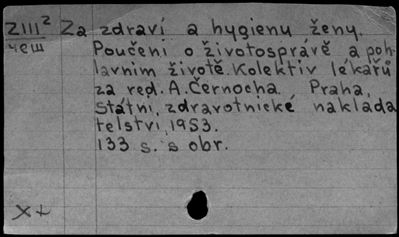 ZIII² Za zdraví a hygienu ženy.
чеш Poučení o životosprávě a poh-
lavním životě. Kolektiv lékařů
za red. A. Černocha. Praha,
Státní, zdravotnické naklada
telství, 1953.
133 s. s obr.
X+